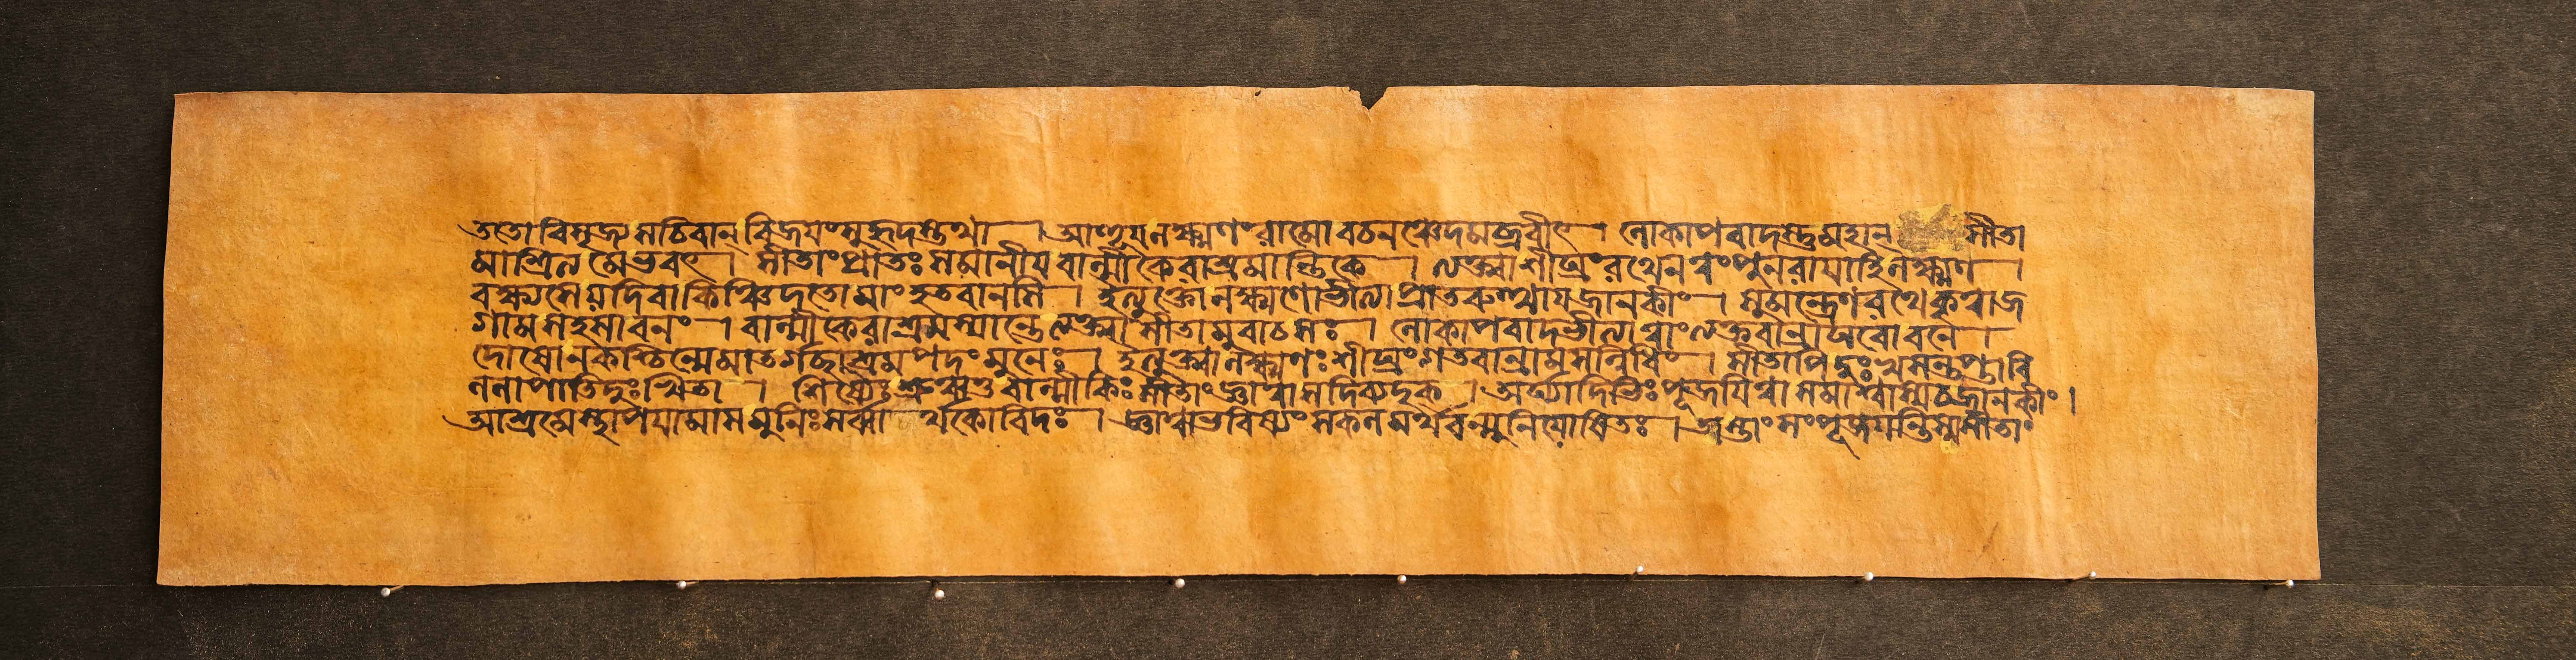 ততোবিসৃজ্যসচিবান্ বিজয়ংসুহৃদস্তথা । আহূয়লক্ষ্মণংরামোবচনঞ্চেদমব্রবীৎ । লোকাপবাদস্তুমহান্ সীতা
মাশ্রিত্যমেভবৎ । সীতাংপ্রাতঃসমানীয়বাল্মীকেরাশ্রমান্তিকে । ত্যক্ত্বাশীঘ্রংরথেনত্বংপুনরায়াহিলক্ষ্মণ ।
বক্ষ্যসেয়দিবাকিঞ্চিদ্দতোমাংহতবানসি । ইত্যুক্তোলক্ষ্মণোভীত্যাপ্রাতরুত্থায়জানকীং । সুমন্ত্রেণরথেকৃত্বাজ
গামসহসাবনং । বাল্মীকেরাশ্রমস্যান্তেত্যক্ত্বাসীতামুবাচসঃ । লোকাপবাদভীত্যাত্বাংত্যক্তবান্রাঘবোবনে ।
দোষোনকশ্চিন্মেমাতর্গচ্ছাশ্রমপদংমুনেঃ । ইত্যুক্ত্বালক্ষ্মণঃশীঘ্রংগতবান্রামসন্নিধিং । সীতাপিদুঃখসন্তপ্তাবি
ললাপাতিদুঃখিতা । শিষ্যৈঃশ্রুত্বাতুবাল্মীকিঃসীতাংজ্ঞাত্বাসদিব্যদৃক্ । অর্ঘ্যাদিভিঃপূজয়িত্বাসমাশ্বাস্যচজানকীং ।
আশ্রমেস্থাপয়ামাসমুনিঃসর্ব্বার্থকোবিদঃ । জ্ঞাত্বাভবিষ্যংসকলমর্থবন্মুনিয়োষিতঃ । অস্তাংসংপূজয়ন্তিস্মসীতাং